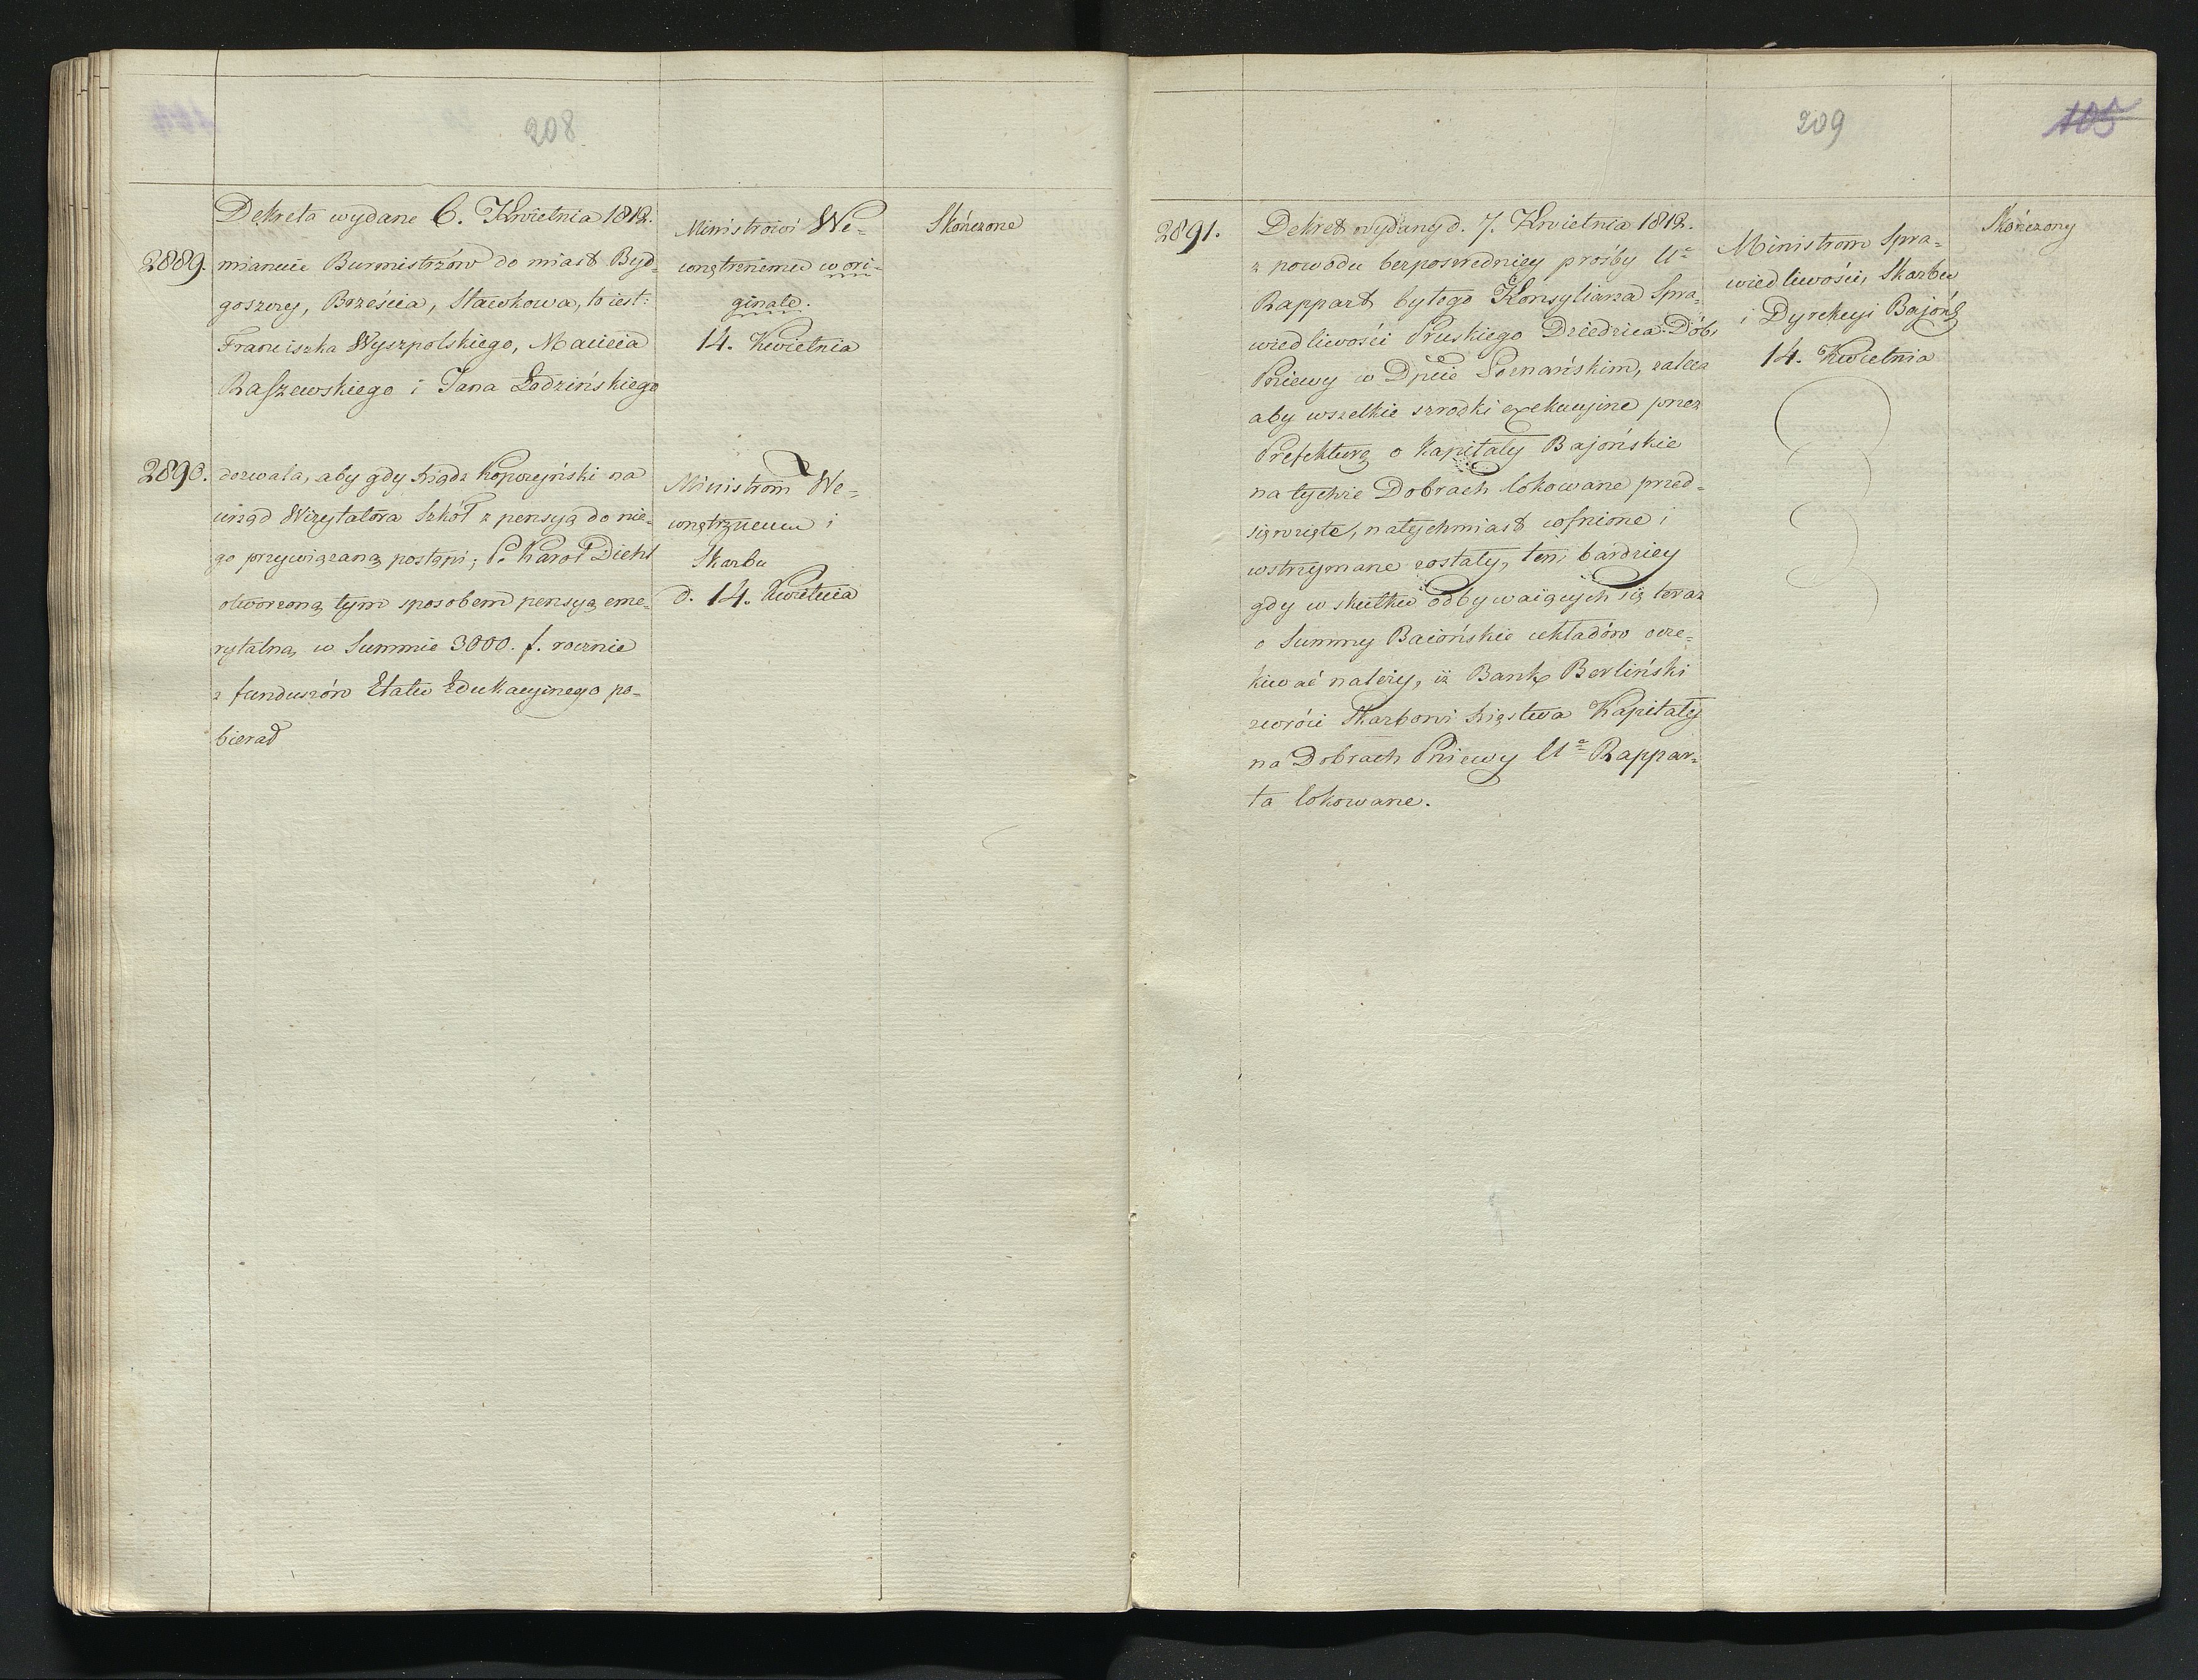 208
Dekreta wydane 6. Kwietnia 1812.
2889. mianuie Burmistrzów do miast Byd-
goszczy, Brześcia, Sławkowa, to iest:
Franciszka Wyszpolskiego, Macieia
Raszewskiego i Jana Łodzińskiego
Ministrowi We-
wnętrznemu w ori-
ginale.
14. Kwietnia
Skończone
2890. dozwala, aby gdy Xiądz Kopczyński na
urząd Wizytatora Szkół z pensyą do nie-
go przywiązaną postąpi; P. Karol Diehl
otworzoną tym sposobem pensyą eme-
rytalną w Summie 3000. f. rocznie
z funduszów Etatu Edukacyinego po-
bierał
Ministrom We-
wnętrznemu i
Skarbu
d. 14. Kwietnia
209
105
2891. Dekret wydany d. 7. Kwietnia 1812.
z powodu bezposredniey prośby Ur
Rappart byłego Konsyliarza Spra-
wiedliwości Pruskiego Dziedzica Dóbr
Pniewy w Dpcie Poznańskim, zaleca
aby wszelkie szrodki exekucyine przez
Prefekturę o Kapitały Bajońskie
na tychże Dobrach lokowane przed-
sięwzięte, natychmiast cofnione i
wstrzymane zostały, tem bardziey
gdy w skutku odbywaiących się teraz
o Summy Baiońskie układów ocze-
kiwać należy, iż Bank Berliński
zwróci Skarbowi Xięstwa Kapitały
na Dobrach Pniewy Ur Rappar-
ta lokowane.
Ministrom Spra-
wiedliwości, Skarbu
i Dyrekcyi Bajońs
14. Kwietnia
Skończony